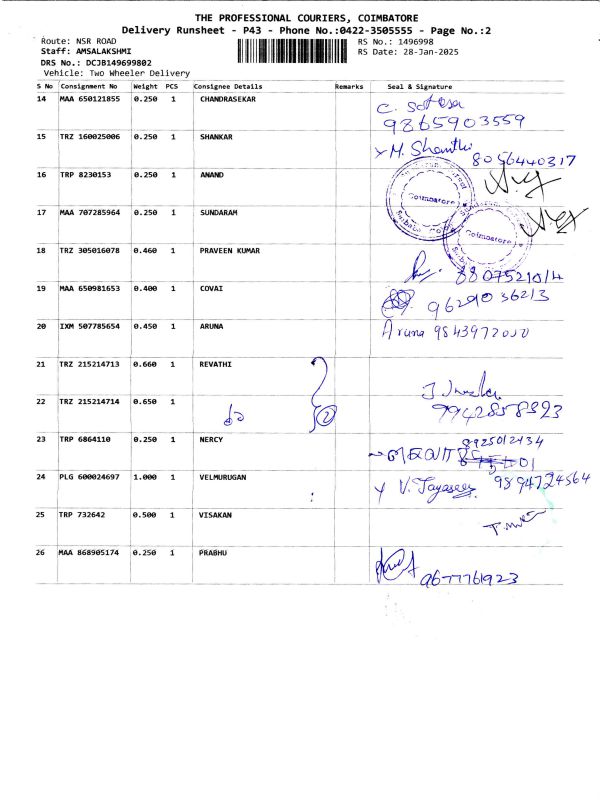 THE PROFESSIONAL COURIERS, COIMBATORE
Delivery Runsheet - P43 - Phone No.:0422-3505555 - Page No.:2
Route: NSR ROAD
RS No.: 1496998
Staff: AMSALAKSHMI
RS Date: 28-Jan-2025
DRS No.: DCJB149699802
Vehicle: Two Wheeler Delivery
S No Consignment No Weight PCS Consignee Details Remarks Seal & Signature
14 MAA 650121855 0.250 1 CHANDRASEKAR
C.
9865903559
15 TRZ 160025006 0.250 1 SHANKAR
M. Shanthi
8056440317
16 TRP 8230153 0.250 1 ANAND
Coimbatore
17 MAA 707285964 0.250 1 SUNDARAM
Coimbatore
18 TRZ 305016078 0.460 1 PRAVEEN KUMAR
8807521014
19 MAA 650981653 0.400 1 COVAI
9629036213
20 IXM 507785654 0.450 1 ARUNA
Aruna 9843972020
21 TRZ 215214713 0.660 1 REVATHI
22 TRZ 215214714 0.650 1
2
9942858393
23 TRP 6864110 0.250 1 NERCY
8925012434
24 PLG 600024697 1.000 1 VELMURUGAN
V. Jayasree 9894724564
25 TRP 732642 0.500 1 VISAKAN
26 MAA 868905174 0.250 1 PRABHU
9677761923